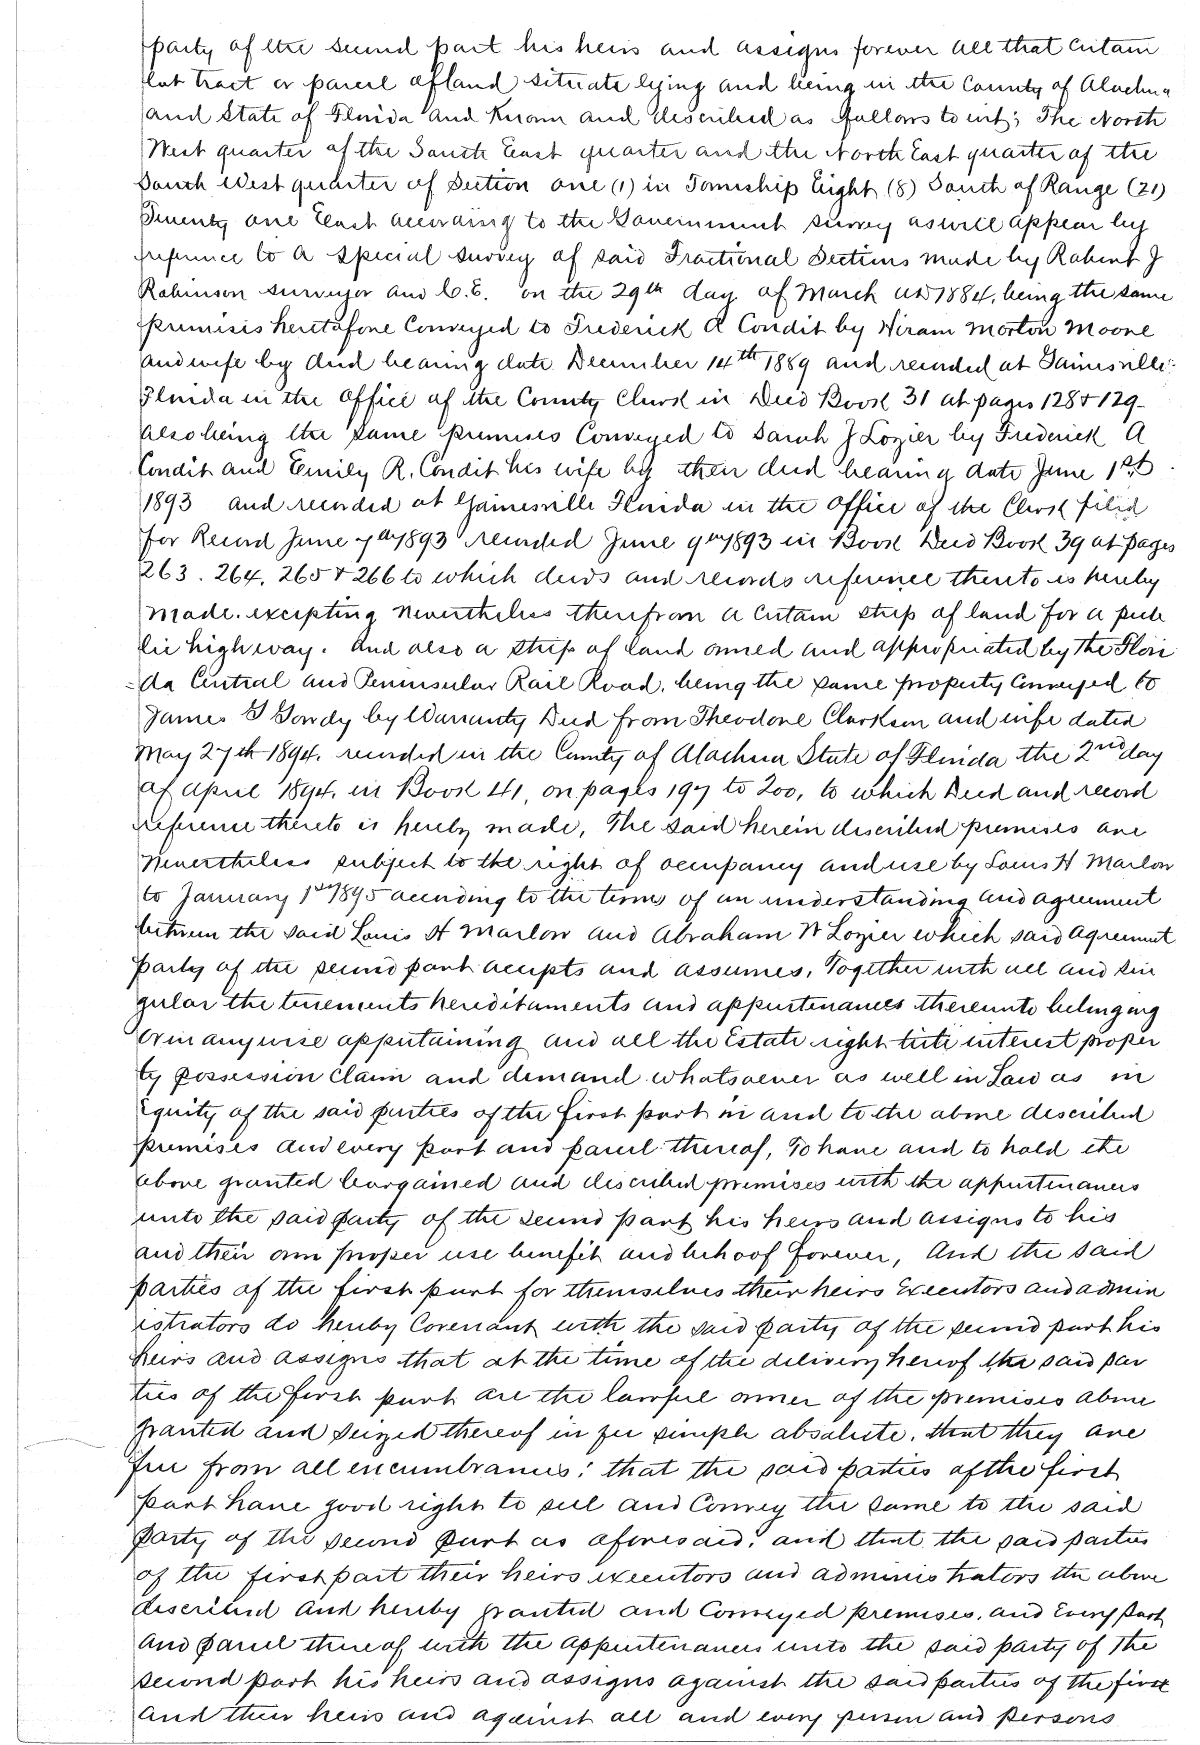 party of the second part his heirs and assigns forever all that certain
lot tract or parcel of land situate lying and being in the County of Alachua
and State of Florida and Known and described as follows to wit; The North
West quarter of the South East quarter and the North East quarter of the
South West quarter of Section one (1) in Township Eight (8) South of Range (21)
Twenty one East according to the Government survey as will appear by
reference to a special survey of said Fractional Sections made by Robert J
Robinson surveyor and C.E. on the 29th day of March AD 1884, being the same
premises heretofore Conveyed to Frederick A Condit by Hiram Morton Moore
and wife by deed bearing date December 14th 1889 and recorded at Gainesville
Florida in the Office of the County Clerk in Deed Book 31 at pages 128 & 129-
also being the same premises Conveyed to Sarah J Lozier by Frederick A
Condit and Emily R. Condit his wife by their deed bearing date June 1st
1893 and recorded at Gainesville Florida in the Office of the Clerk filed
for Record June 7th 1893 recorded June 9th 1893 in Book Deed Book 39 at pages
263. 264, 265 & 266 to which deeds and records reference thereto is hereby
made. excepting nevertheless therefrom a certain strip of land for a pub
lic highway. and also a strip of land owned and appropriated by the Flori
-da Central and Peninsular Rail Road, being the same property Conveyed to
James G Gordy by Warranty Deed from Theodore Clarkson and wife dated
May 27th 1894, recorded in the County of Alachua State of Florida the 2nd day
of April 1894, in Book 41, on pages 197 to 200, to which Deed and record
reference thereto is hereby made, The said herein described premises are
nevertheless subject to the right of occupancy and use by Louis H Marlow
to January 1st 1895 according to the terms of an understanding and agreement
between the said Louis H Marlow and Abraham W Lozier which said agreement
party of the second part accepts and assumes, Together with all and sin
gular the tenements hereditaments and appurtenances thereunto belonging
or in anywise appertaining and all the Estate right title interest proper
ty possession claim and demand whatsoever as well in Law as in
Equity of the said parties of the first part in and to the above described
premises and every part and parcel thereof, To have and to hold the
above granted bargained and described premises with the appurtenances
unto the said party of the second part his heirs and assigns to his
and their own proper use benefit and behoof forever, And the said
parties of the first part for themselves their heirs Executors and admin
istrators do hereby Covenant with the said party of the second part his
heirs and assigns that at the time of the delivery hereof the said par
ties of the first part are the lawful owner of the premises above
granted and seized thereof in fee simple absolute. that they are
free from all encumbrances; that the said parties of the first
part have good right to sell and Convey the same to the said
party of the second part as aforesaid; and that the said parties
of the first part their heirs executors and administrators the above
described and hereby granted and Conveyed premises, and Every part
and parcel thereof with the appurtenances unto the said party of the
second part his heirs and assigns against the said parties of the first
and their heirs and against all and every person and persons